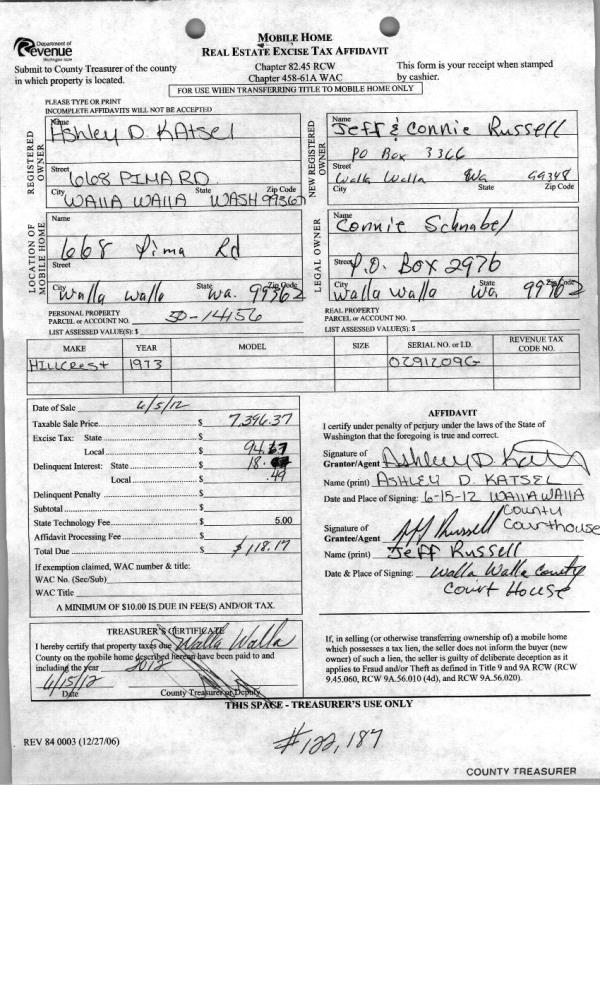 Department of
Revenue
Washington State
MOBILE HOME
REAL ESTATE EXCISE TAX AFFIDAVIT
Submit to County Treasurer of the county
in which property is located.
Chapter 82.45 RCW
Chapter 458-61A WAC
This form is your receipt when stamped
by cashier.
FOR USE WHEN TRANSFERRING TITLE TO MOBILE HOME ONLY
PLEASE TYPE OR PRINT
INCOMPLETE AFFIDAVITS WILL NOT BE ACCEPTED
REGISTERED
OWNER
Name
Ashley D. KAtsel
Street
668 PIMA RD
City State Zip Code
WAllA WAllA WASH 99362
NEW REGISTERED
OWNER
Name
Jeff & Connie Russell
PO Box 3366
Street
Walla Walla Wa 99348
City State Zip Code
LOCATION OF
MOBILE HOME
Name
668 Pima Rd
Street
City State Zip Code
Walla walla wa. 99362
LEGAL OWNER
Name
Connie Schnabel
Street P.O. Box 2976
City State Zip Code
Walla Walla Wa, 99362
PERSONAL PROPERTY
PARCEL or ACCOUNT NO. 50-14156
LIST ASSESSED VALUE(S): $
REAL PROPERTY
PARCEL or ACCOUNT NO.
LIST ASSESSED VALUE(S): $
MAKE YEAR MODEL SIZE SERIAL NO. or I.D. REVENUE TAX
CODE NO.
Hillcrest 1973 0291209G
Date of Sale 6/5/12
Taxable Sale Price $ 7,396.37
Excise Tax: State $
Local $ 94.67
Delinquent Interest: State $ 18.
Local $ .49
Delinquent Penalty $
Subtotal $
State Technology Fee $ 5.00
Affidavit Processing Fee $
Total Due $ $118.17
If exemption claimed, WAC number & title:
WAC No. (Sec/Sub)
WAC Title
A MINIMUM OF $10.00 IS DUE IN FEE(S) AND/OR TAX.
AFFIDAVIT
I certify under penalty of perjury under the laws of the State of
Washington that the foregoing is true and correct.
Signature of
Grantor/Agent Ashley D Kats
Name (print) ASHLEY D. KATSEL
Date and Place of Signing: 6-15-12 WAllA WAllA
County
Courthouse
Signature of
Grantee/Agent Russell
Name (print) Jeff Russell
Date & Place of Signing: Walla Walla County
Court House
TREASURER'S CERTIFICATE
I hereby certify that property taxes due Walla Walla
County on the mobile home described hereon have been paid to and
including the year 2012
6/15/12
Date County Treasurer or Deputy
If, in selling (or otherwise transferring ownership of) a mobile home
which possesses a tax lien, the seller does not inform the buyer (new
owner) of such a lien, the seller is guilty of deliberate deception as it
applies to Fraud and/or Theft as defined in Title 9 and 9A RCW (RCW
9.45.060, RCW 9A.56.010 (4d), and RCW 9A.56.020).
THIS SPACE - TREASURER'S USE ONLY
REV 84 0003 (12/27/06)
#122,187
COUNTY TREASURER